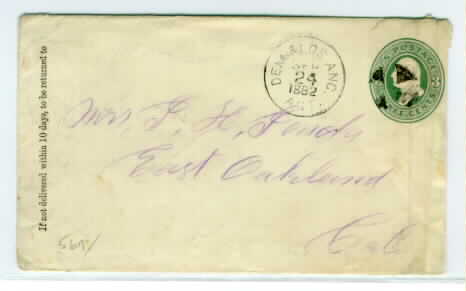 If not delivered within 10 days, to be returned to
24
1882
U.S. POSTAGE
THREE CENTS
Mrs F. H.
East Oakland
Cal